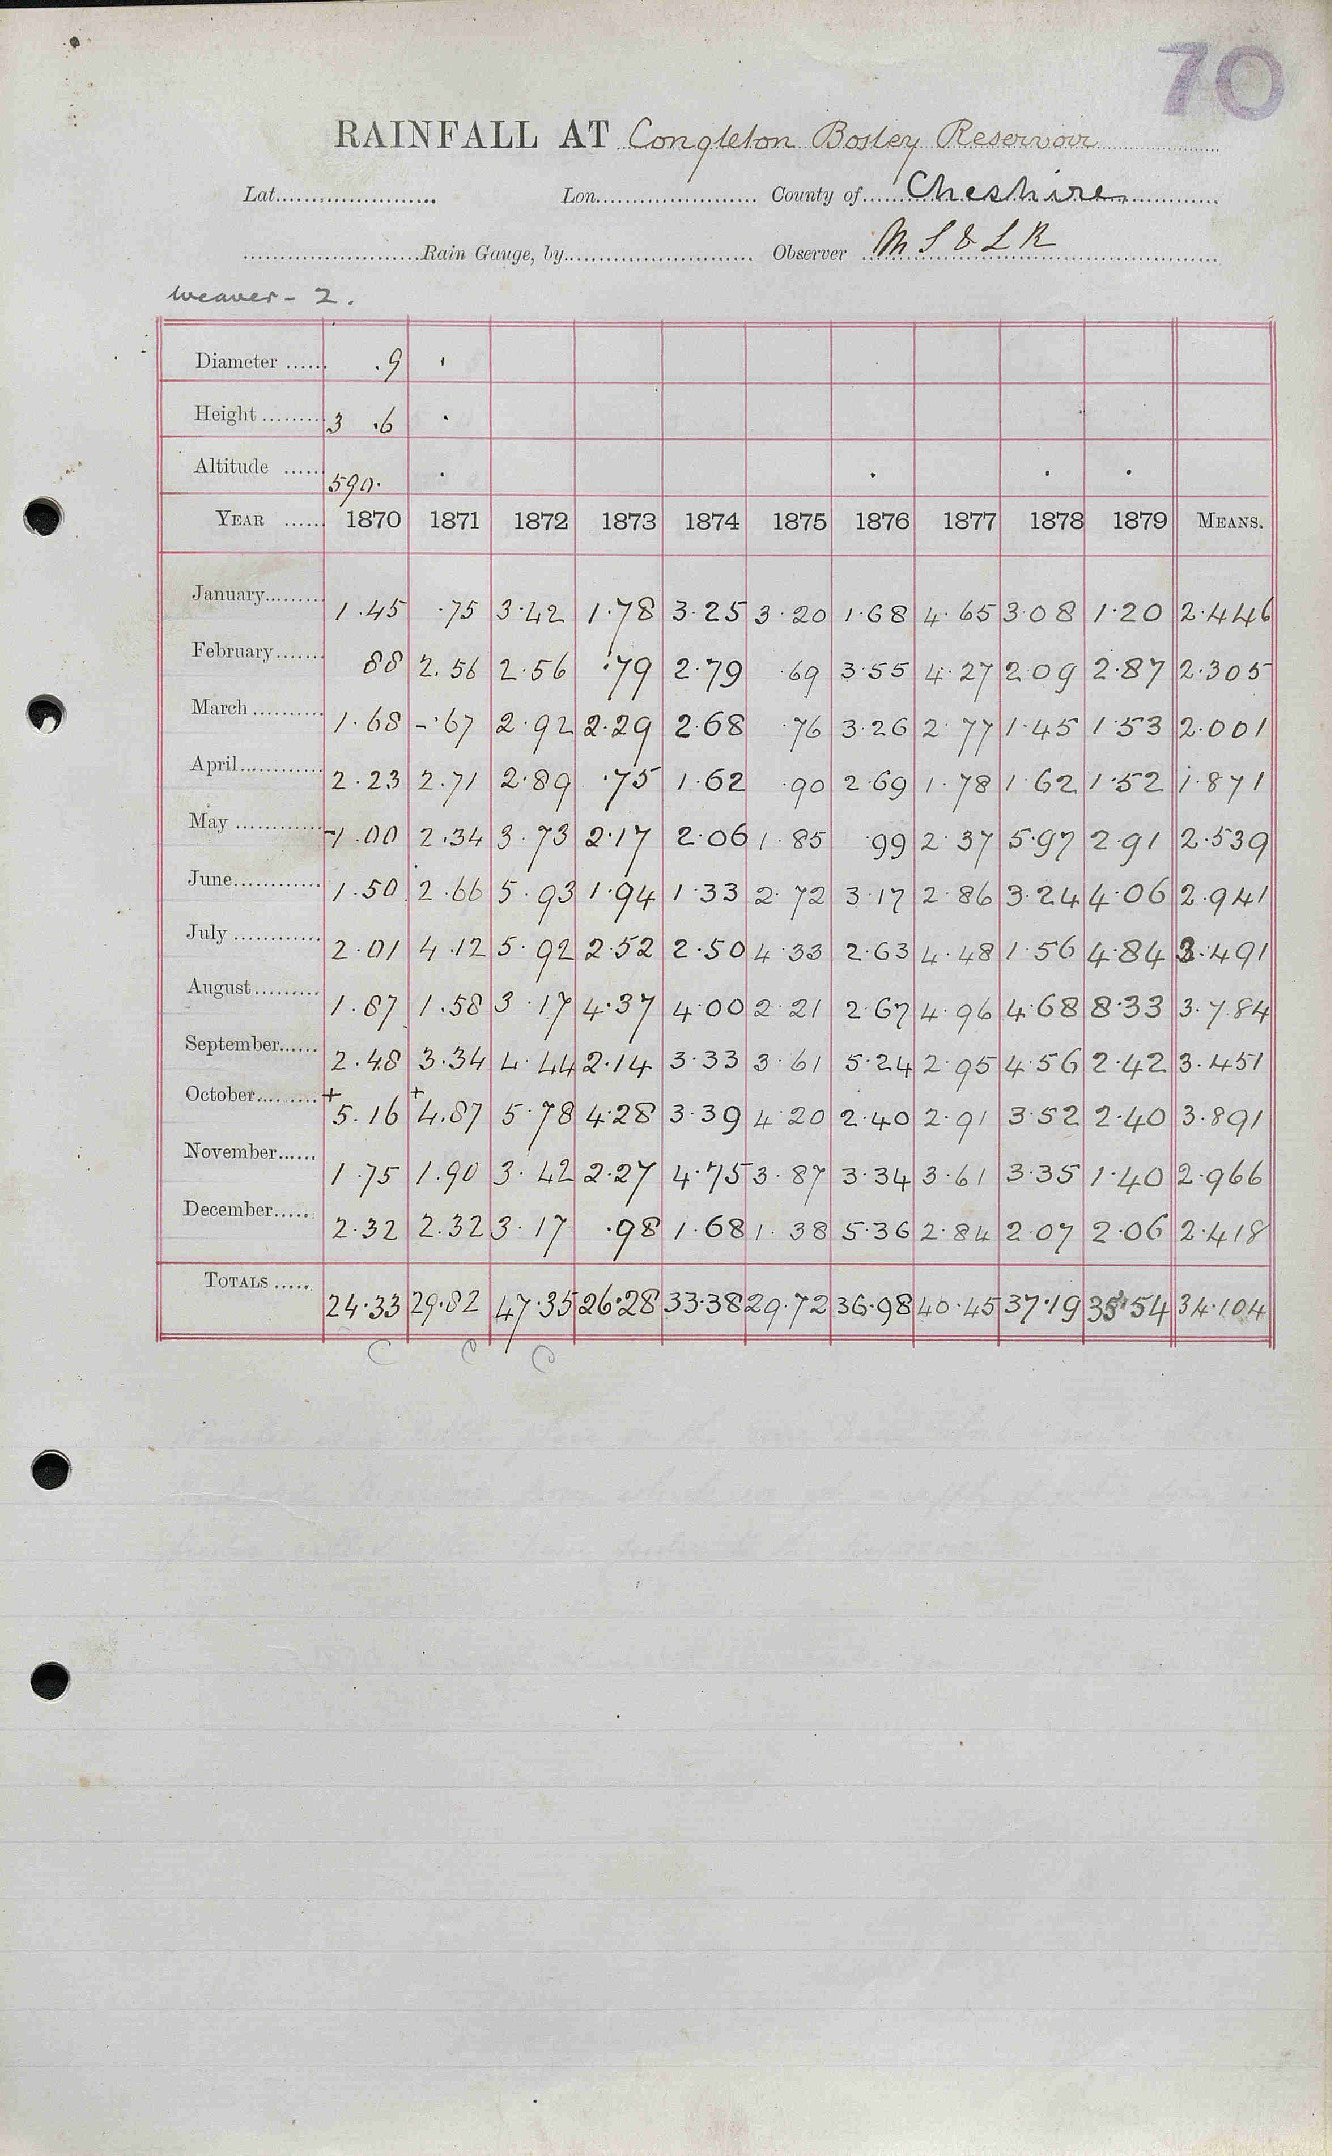 70
RAINFALL AT Congleton Bosley Reservoir
Lat. Lon. County of Cheshire
Rain Gauge, by Observer M S & L R
Weaver - 2.
Diameter .9
Height 3 .6
Altitude 590.
YEAR 1870 1871 1872 1873 1874 1875 1876 1877 1878 1879 MEANS.
January 1.45 .75 3.42 1.78 3.25 3.20 1.68 4.65 3.08 1.20 2.446
February 88 2.56 2.56 .79 2.79 .69 3.55 4.27 2.09 2.87 2.305
March 1.68 -.67 2.92 2.29 2.68 .76 3.26 2.77 1.45 1.53 2.001
April 2.23 2.71 2.89 .75 1.62 .90 2.69 1.78 1.62 1.52 1.871
May -1.00 2.34 3.73 2.17 2.06 1.85 .99 2.37 5.97 2.91 2.539
June 1.50 2.66 5.93 1.94 1.33 2.72 3.17 2.86 3.24 4.06 2.941
July 2.01 4.12 5.92 2.52 2.50 4.33 2.63 4.48 1.56 4.84 3.491
August 1.87 1.58 3.17 4.37 4.00 2.21 2.67 4.96 4.68 8.33 3.784
September 2.48 3.34 4.44 2.14 3.33 3.61 5.24 2.95 4.56 2.42 3.451
October +5.16 +4.87 5.78 4.28 3.39 4.20 2.40 2.91 3.52 2.40 3.891
November 1.75 1.90 3.42 2.27 4.75 3.87 3.34 3.61 3.35 1.40 2.966
December 2.32 2.32 3.17 .98 1.68 1.38 5.36 2.84 2.07 2.06 2.418
TOTALS 24.33 29.82 47.35 26.28 33.38 29.72 36.98 40.45 37.19 35.54 34.104
C C C